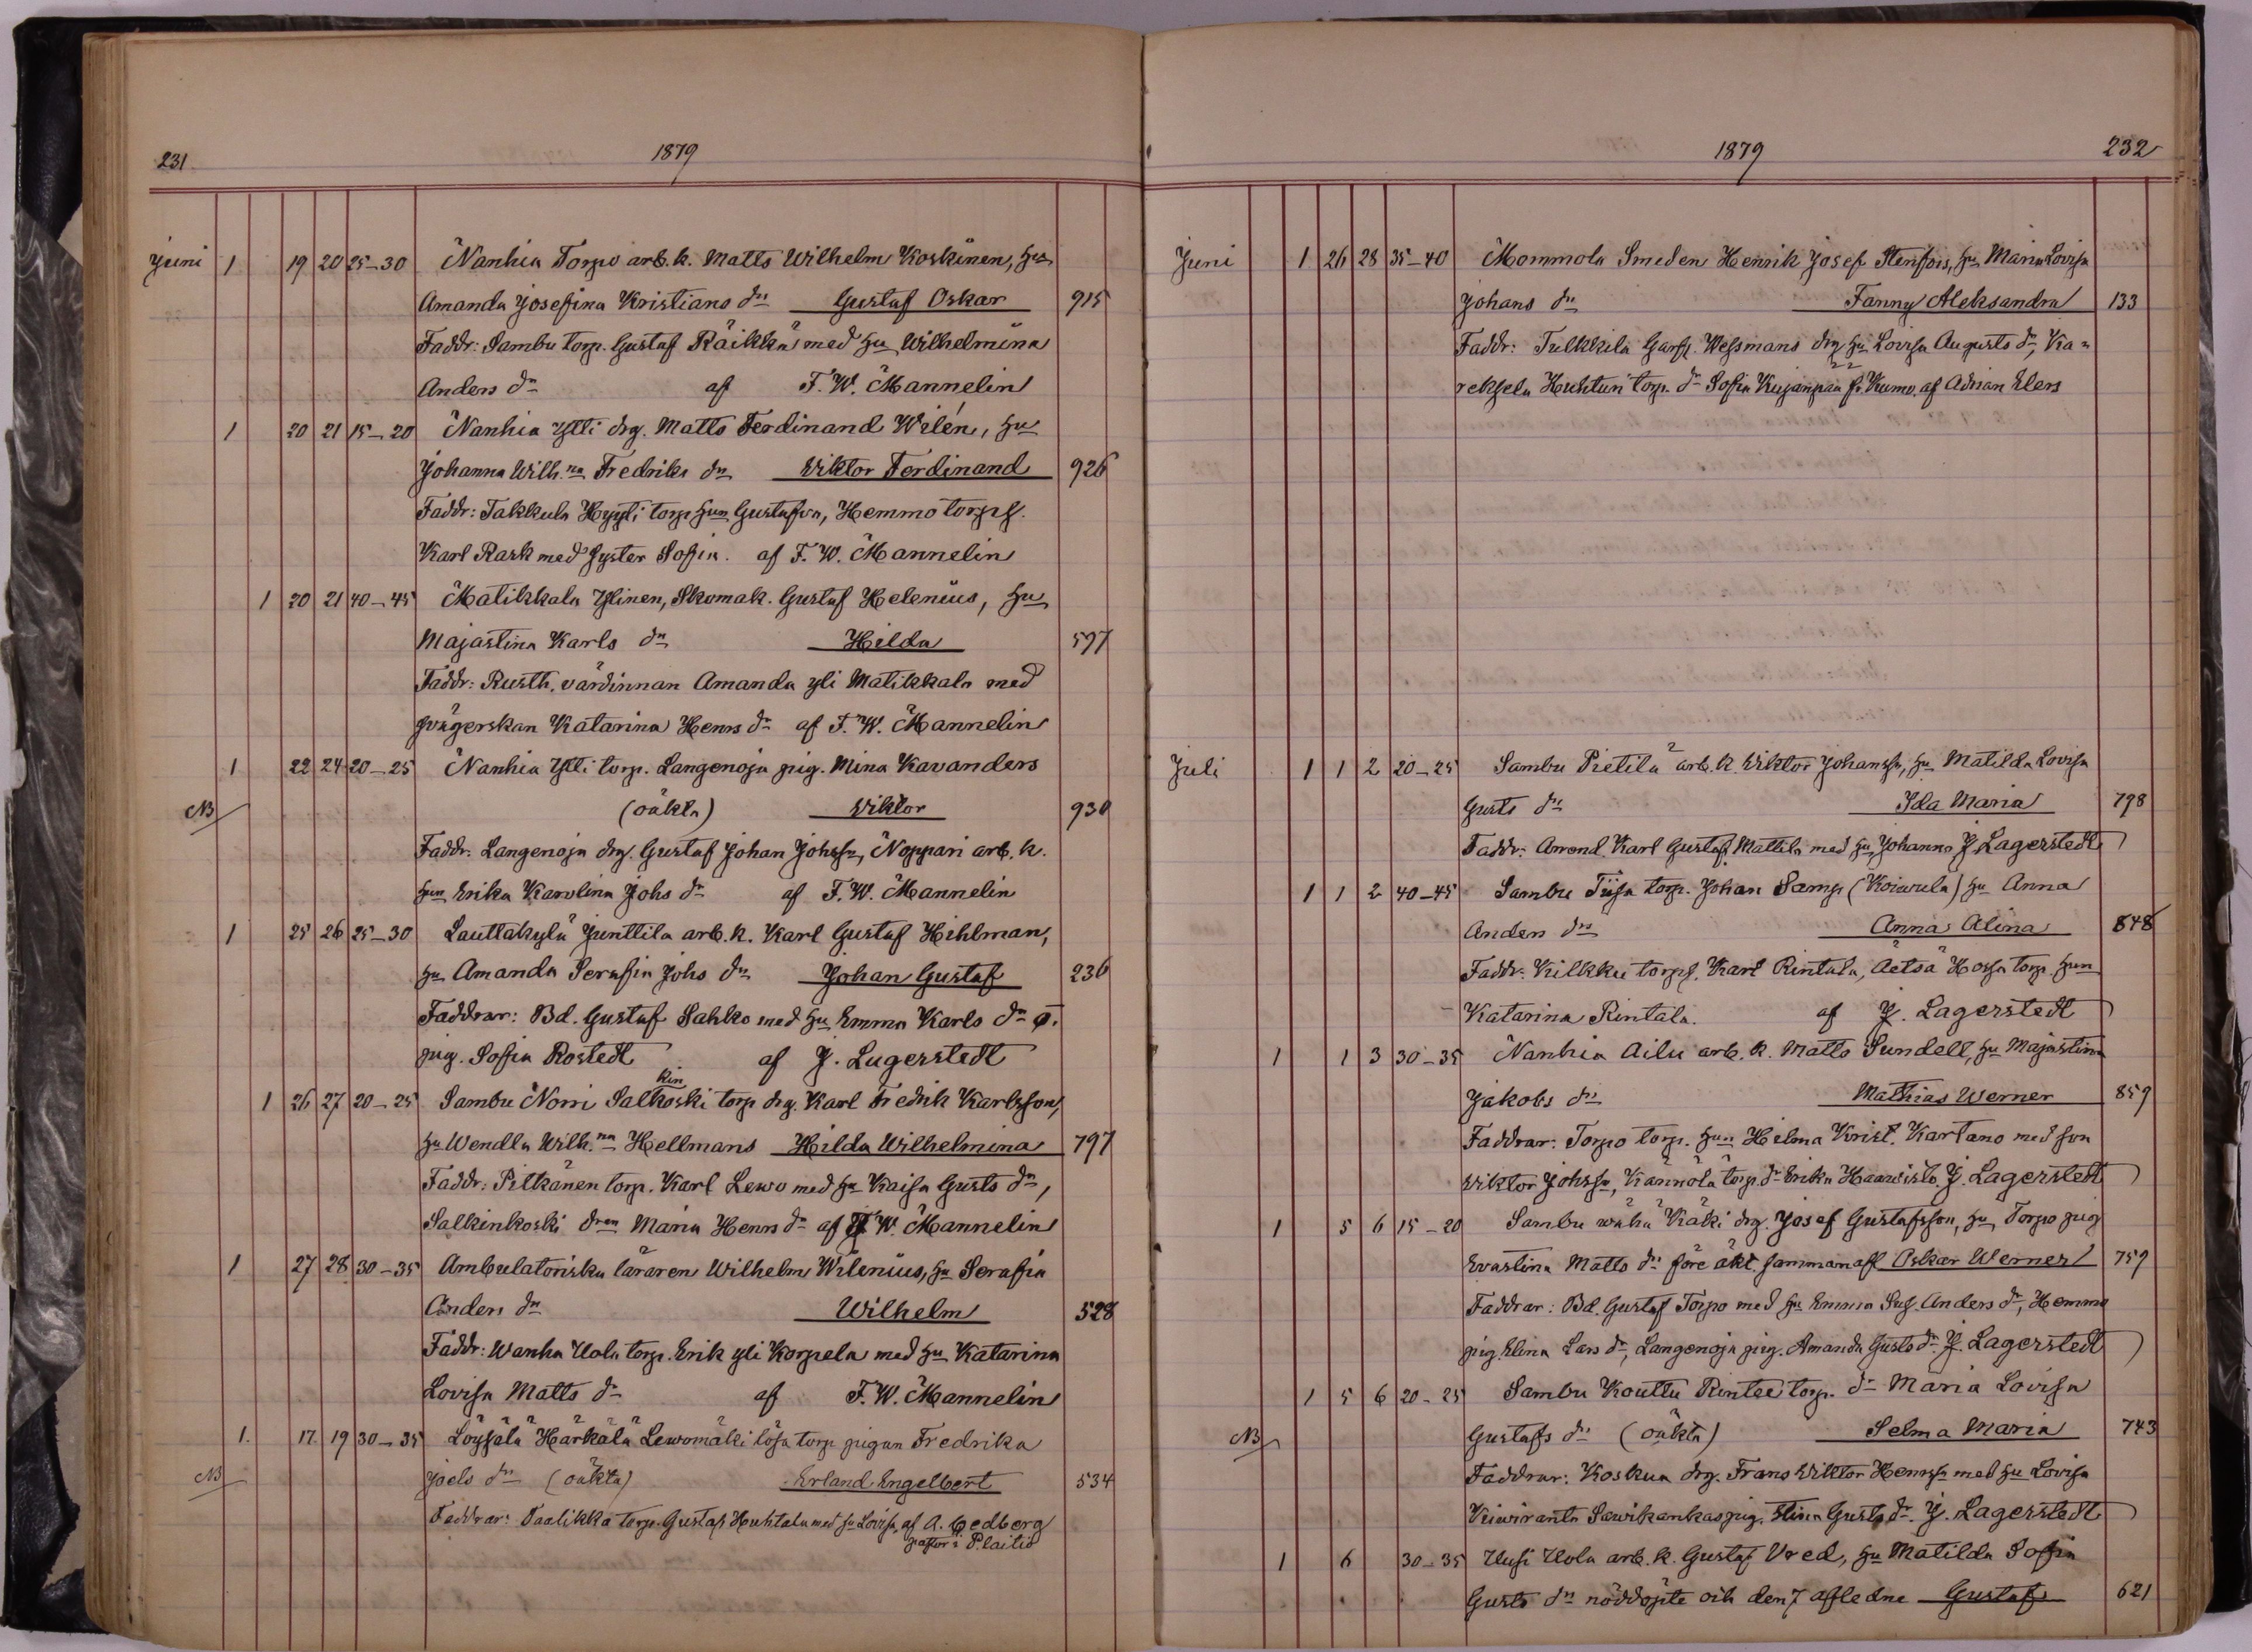 231 1879
Juni 1 19 20 25-30 Nanhia Torpo arb.k. Matts Wilhelm Koskinen, hu
Amanda Josefina Kristians dr Gustaf Oskar 915
Faddr: Sambu torp. Gustaf Räikkä med hu Wilhelmina
Anders dr af F.W. Mannelin
1 20 21 15-20 Nanhia Ylli drg. Matts Ferdinand Wilén, hu
Johanna Wilh.na Fredriks dr Viktor Ferdinand 926
Faddr: Takkula Hyyli torp hun Gustafva, Hemmo torps.
Karl Rask med syster Sofia. af F.W. Mannelin
1 20 21 40-45 Matikkala Ylinen, Skomak. Gustaf Helenius, hu
Majastina Karls dr Hilda 597
Faddr: Rusth. värdinnan Amanda yli Matikkala med
svägerskan Katarina Henrs dr af F.W. Mannelin
1 22 24 20-25 Nanhia Ylli torp. Langenoja pig. Mina Kavanders
NB (oäkta) Viktor 930
Faddr: Langenoja drg. Gustaf Johan Johsn, Noppari arb.k.
hun Erika Karolina Johs dr af F.W. Mannelin
1 25 26 25-30 Lauttakylä Junttila arb.k. Karl Gustaf Hihlman,
hu Amanda Serafia Johs dr Johan Gustaf 236
Faddrar: Bd. Gustaf Sahko med hu Emma Karls dr o.
pig. Soffia Rostedt af J. Lagerstedt
kin
1 26 27 20-25 Sambu Norri Salkoski torp drg. Karl Fredrik Karlsson,
hu Wendla Wilh.na Hellmans Hilda Wilhelmina 797
Faddr: Pitkänen torp. Karl Lewo med hu Kaisa Gusts dr,
Salkinkoski dren Maria Henrs dr af F.W. Mannelin
1 27 28 30-35 Ambulatoriska läraren Wilhelm Wilenius, hu Serafia
Anders dr Wilhelm 528
Faddr: Wanha Uola torp. Erik yli Korpela med hu Katarina
Lovisa Matts dr af F.W. Mannelin
1. 17. 19 30-35 Löysälä Härkälä Lewomäki lösa torp pigan Fredrika
NB Joels dr (oäkta) Erland Engelbert 534
Faddrar: Taalikka torp. Gustaf Huhtala med hu Lovisa, af A. Cedberg
pastor i Plailio
1879 232
Juni 1 26 28 35-40 Mommola Smeden Henrik Josef Stenfors, hu Maria Lovisa
Johans dr Fanny Aleksandra 133
Faddr: Tulkkila Garfv. Wessmans drg hu Lovisa Augusts dr, Ka=
reksela Huhtun torp. dr Sofia Kujanpää fr. Kumo. af Adrian Elers
Juli 1 1 2 20-25 Sambu Pietilä arb.k. Viktor Johanss, hu Matilda Lovisa
Gusts dr Ida Maria 798
Faddr: Arrend. Karl Gustaf Mattila med hu Johanna J. Lagerstedt
1 1 2 40-45 Sambu Tiisa torp. Johan Samp (Koiwula) hu Anna
Anders dr Anna Alina 848
Faddr: Kilkku torps. Karl Rintala, Äetsä Hossa torp. hun
Katarina Rintala. af J. Lagerstedt
1 1 3 30-35 Nanhia Ailu arb.k. Matts Sundell, hu Majastina
Jakobs dr Mathias Werner 859
Faddrar: Torpo torp. hun Helma Krist. Kartano med son
Viktor Johsn, Kännölä torp. dr Erika Haawisto. J. Lagerstedt
1 5 6 15-20 Sambu wähä Käki drg. Josef Gustafsson, hu Torpo pig
Evastina Matts dr före äkt. sammanafl Oskar Werner 759
Faddrar: Bd. Gustaf Torpo med hu Emma Sof. Anders dr, Hemmo
pig. Elina Lars dr, Langenoja pig. Amanda Gusts dr. J. Lagerstedt
1 5 6 20-25 Sambu Kouttu Rintee torp. dr Maria Lovisa
NB Gustafs dr (oäkta) Selma Maria 743
Faddrar: Koskua drg. Frans Viktor Henrss med hu Lovisa
Kiviranta Sawikankas pig. Stina Gusts dr. J. Lagerstedt
1 6 30-35 Uusi Uola arb.k. Gustaf Vred, hu Matilda Sofia
Gusts dr nöddöpte och den 7 afledne Gustaf 621